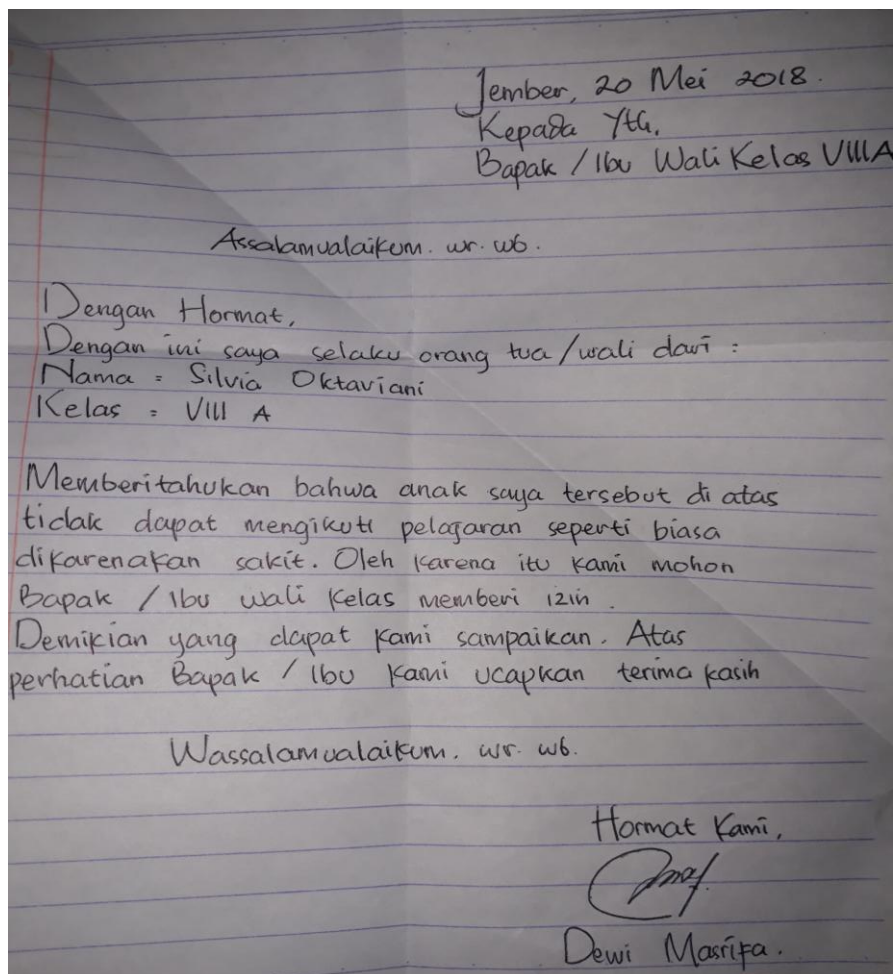 Jember, 20 Mei 2018.
Kepada Yth.
Bapak / Ibu Wali Kelas VIII A
Assalamualaikum. wr. wb.
Dengan Hormat,
Dengan ini saya selaku orang tua / wali dari :
Nama : Silvia Oktaviani
Kelas : VIII A
Memberitahukan bahwa anak saya tersebut di atas
tidak dapat mengikuti pelajaran seperti biasa
dikarenakan sakit. Oleh karena itu kami mohon
Bapak / Ibu wali kelas memberi izin.
Demikian yang dapat kami sampaikan. Atas
perhatian Bapak / Ibu kami ucapkan terima kasih
Wassalamualaikum. wr. wb.
Hormat Kami,
Dewi Masrifa.